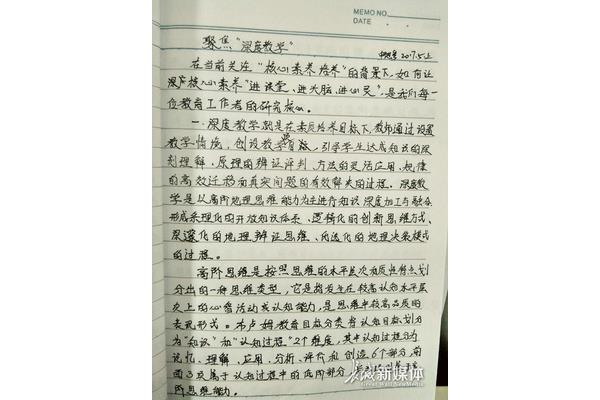 MEMO NO.
DATE
聚焦"深度教学"
2017.5上
在当前关注"核心素养培养"的背景下,如何让
深度核心素养"进课堂、进大脑、进心灵",是我们每一
位教育工作者的研究核心。
一、深度教学就是在素质培养目标下,教师通过设置
教学情境,创设教学,引导学生达成知识的深
刻理解、原理的辨证评判、方法的灵活应用、规律
的高效迁移和真实问题的有效解决的过程。深度教
学是以高阶地理思维能力为主进行知识深度加工与融会
形成条理化的开放知识体系、逻辑化的创新思维方式、
深邃化的地理辨证思维、化的地理决策模式
的过程。
高阶思维是按照思维的水平层次和质性特点划
分出的一种思维类型,它是指发生在较高认知水平层
次上的心智活动或认知能力,是思维中较高品质的
表现形式。布卢姆教育目标分类将认知目标划分
为"知识"和"认知过程"2个维度,其中认知过程分为
记忆、理解、应用、分析、评价和创造6个部分,前
面3项属于认知过程中的低阶部分
阶思维能力。
长城新媒体
Great Wall New Media